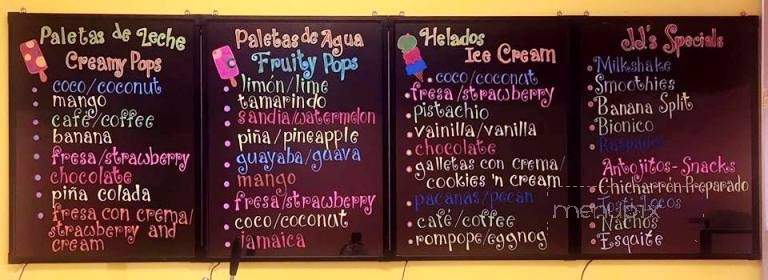 Paletas de Leche
Creamy Pops
coco/coconut
mango
café/coffee
banana
fresa/strawberry
chocolate
piña colada
fresa con crema/
strawberry and
cream
Paletas de Agua
Fruity Pops
limón/lime
tamarindo
sandia/watermelon
piña/pineapple
guayaba/guava
mango
fresa/strawberry
coco/coconut
jamaica
Helados
Ice Cream
coco/coconut
fresa/strawberry
pistachio
vainilla/vanilla
chocolate
galletas con crema/
cookies 'n cream
pacanas/pecan
café/coffee
rompope/eggnog
JJ's Specials
Milkshake
Smoothies
Banana Split
Bionico
Raspados
Antojitos-Snacks
Chicharrón Preparado
Tosti Locos
Nachos
Esquite
menupix